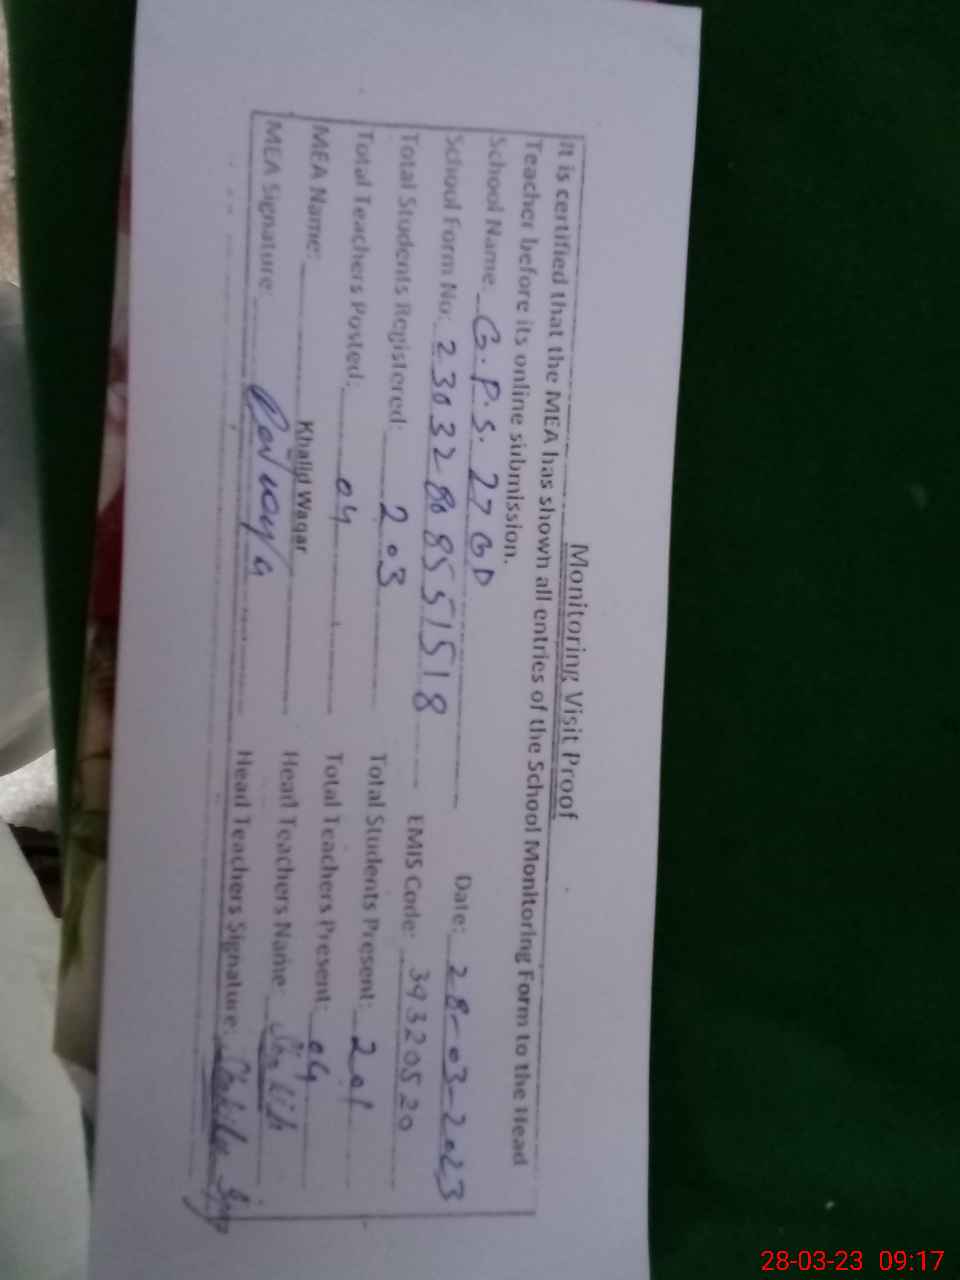 Monitoring Visit Proof
It is certified that the MEA has shown all entries of the School Monitoring Form to the Head
Teacher before its online submission.
School Name: G.P.S. 27 GD Date: 28-03-2023
School Form No: 23032808551518 EMIS Code: 39320520
Total Students Registered: 203 Total Students Present: 201
Total Teachers Posted: 04 Total Teachers Present: 04
MEA Name: Khalid Waqar Head Teachers Name:
MEA Signature: Head Teachers Signature:
28-03-23 09:17